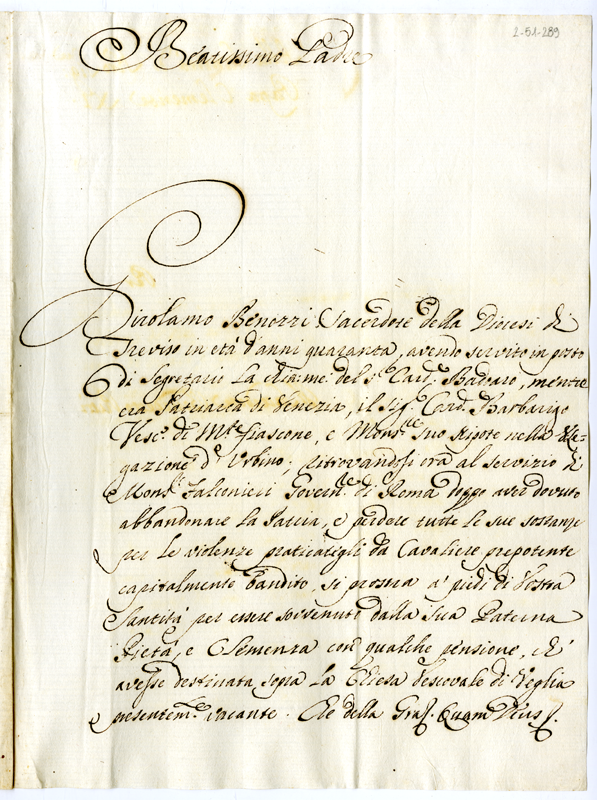 2-51-289
Beatissimo Padre
Girolamo Benozzi Sacerdote della Diocesi di
Treviso in età d'anni quaranta, avendo servito in posto
di Segretario la chiar. me. del Sr. Card. Badoaro, mentre
era Patriarca di Venezia, il Sig. Card. Barbarigo
Vesc. di Mte. fiascone, e Monsre. suo Nipote nella Le-
gazione d'Urbino; ritrovandosi ora al servizio di
Monsr. Falconieri Governre. di Roma doppo aver dovuto
abbandonare la Patria, e perdere tutte le sue sostanze
per le violenze praticategli da Cavaliere prepotente
capitalmente bandito, si prostra a' piedi di Vostra
Santità per essere sovvenuto dalla sua Paterna
Pietà, e Clemenza con qualche pensione, ch'
avesse destinata sopra la Chiesa Vescovale di Veglia
presentemte. vacante. Che della Gra. Quam Deus